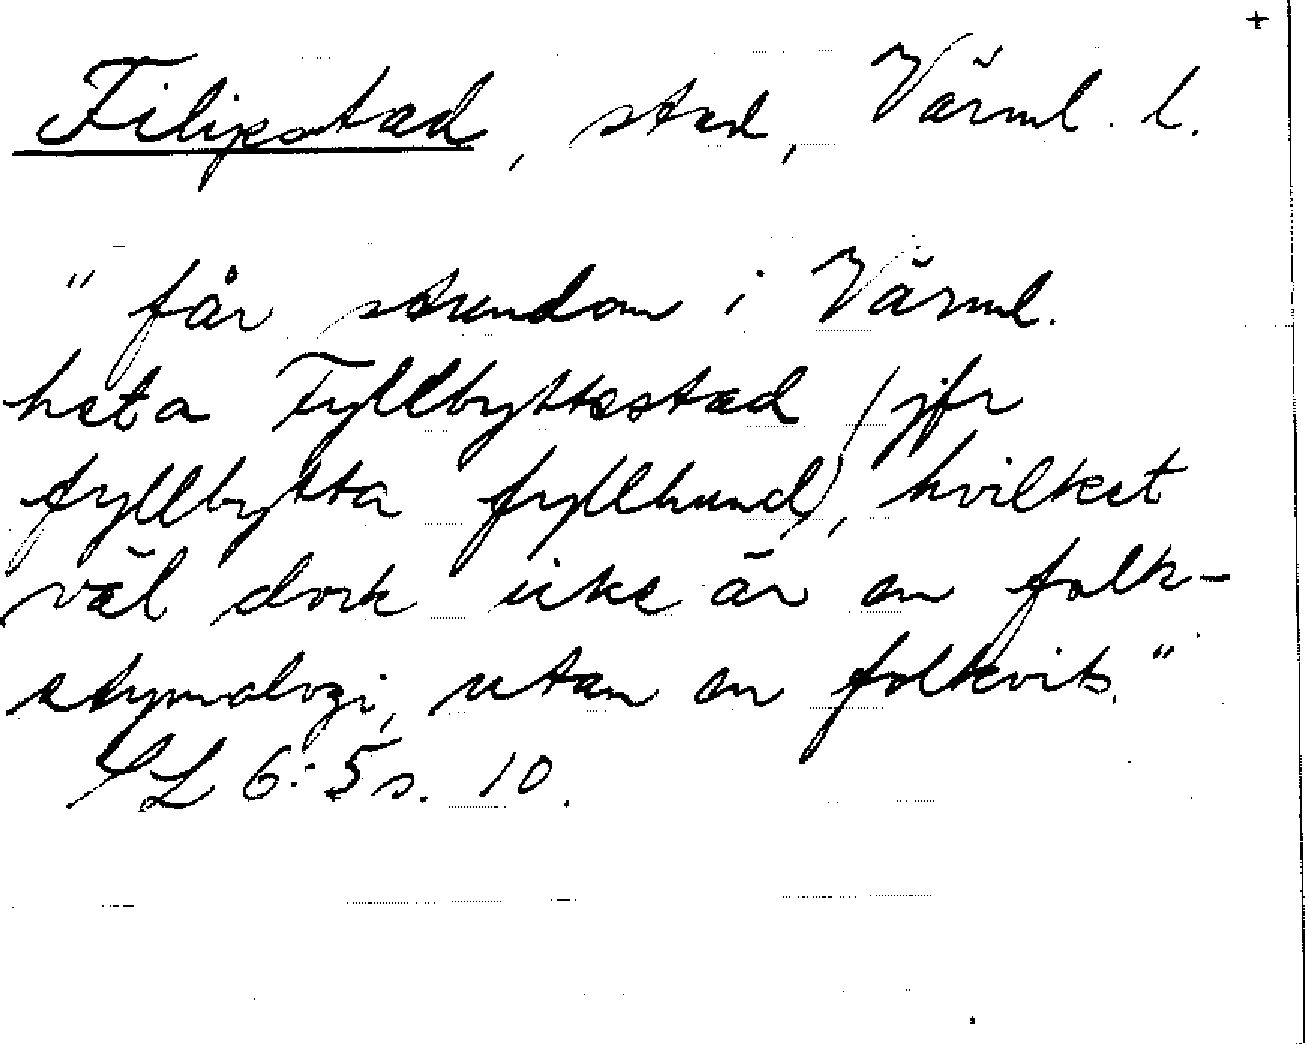 +
Filipstad, stad, Värml. l.
" får stundom i Värml.
heta Fyllbyttestad (jfr
fyllbytta fyllhund), hvilket
väl dock icke är en folk-
etymologi, utan en folkvits."
SL 6:5 s. 10.